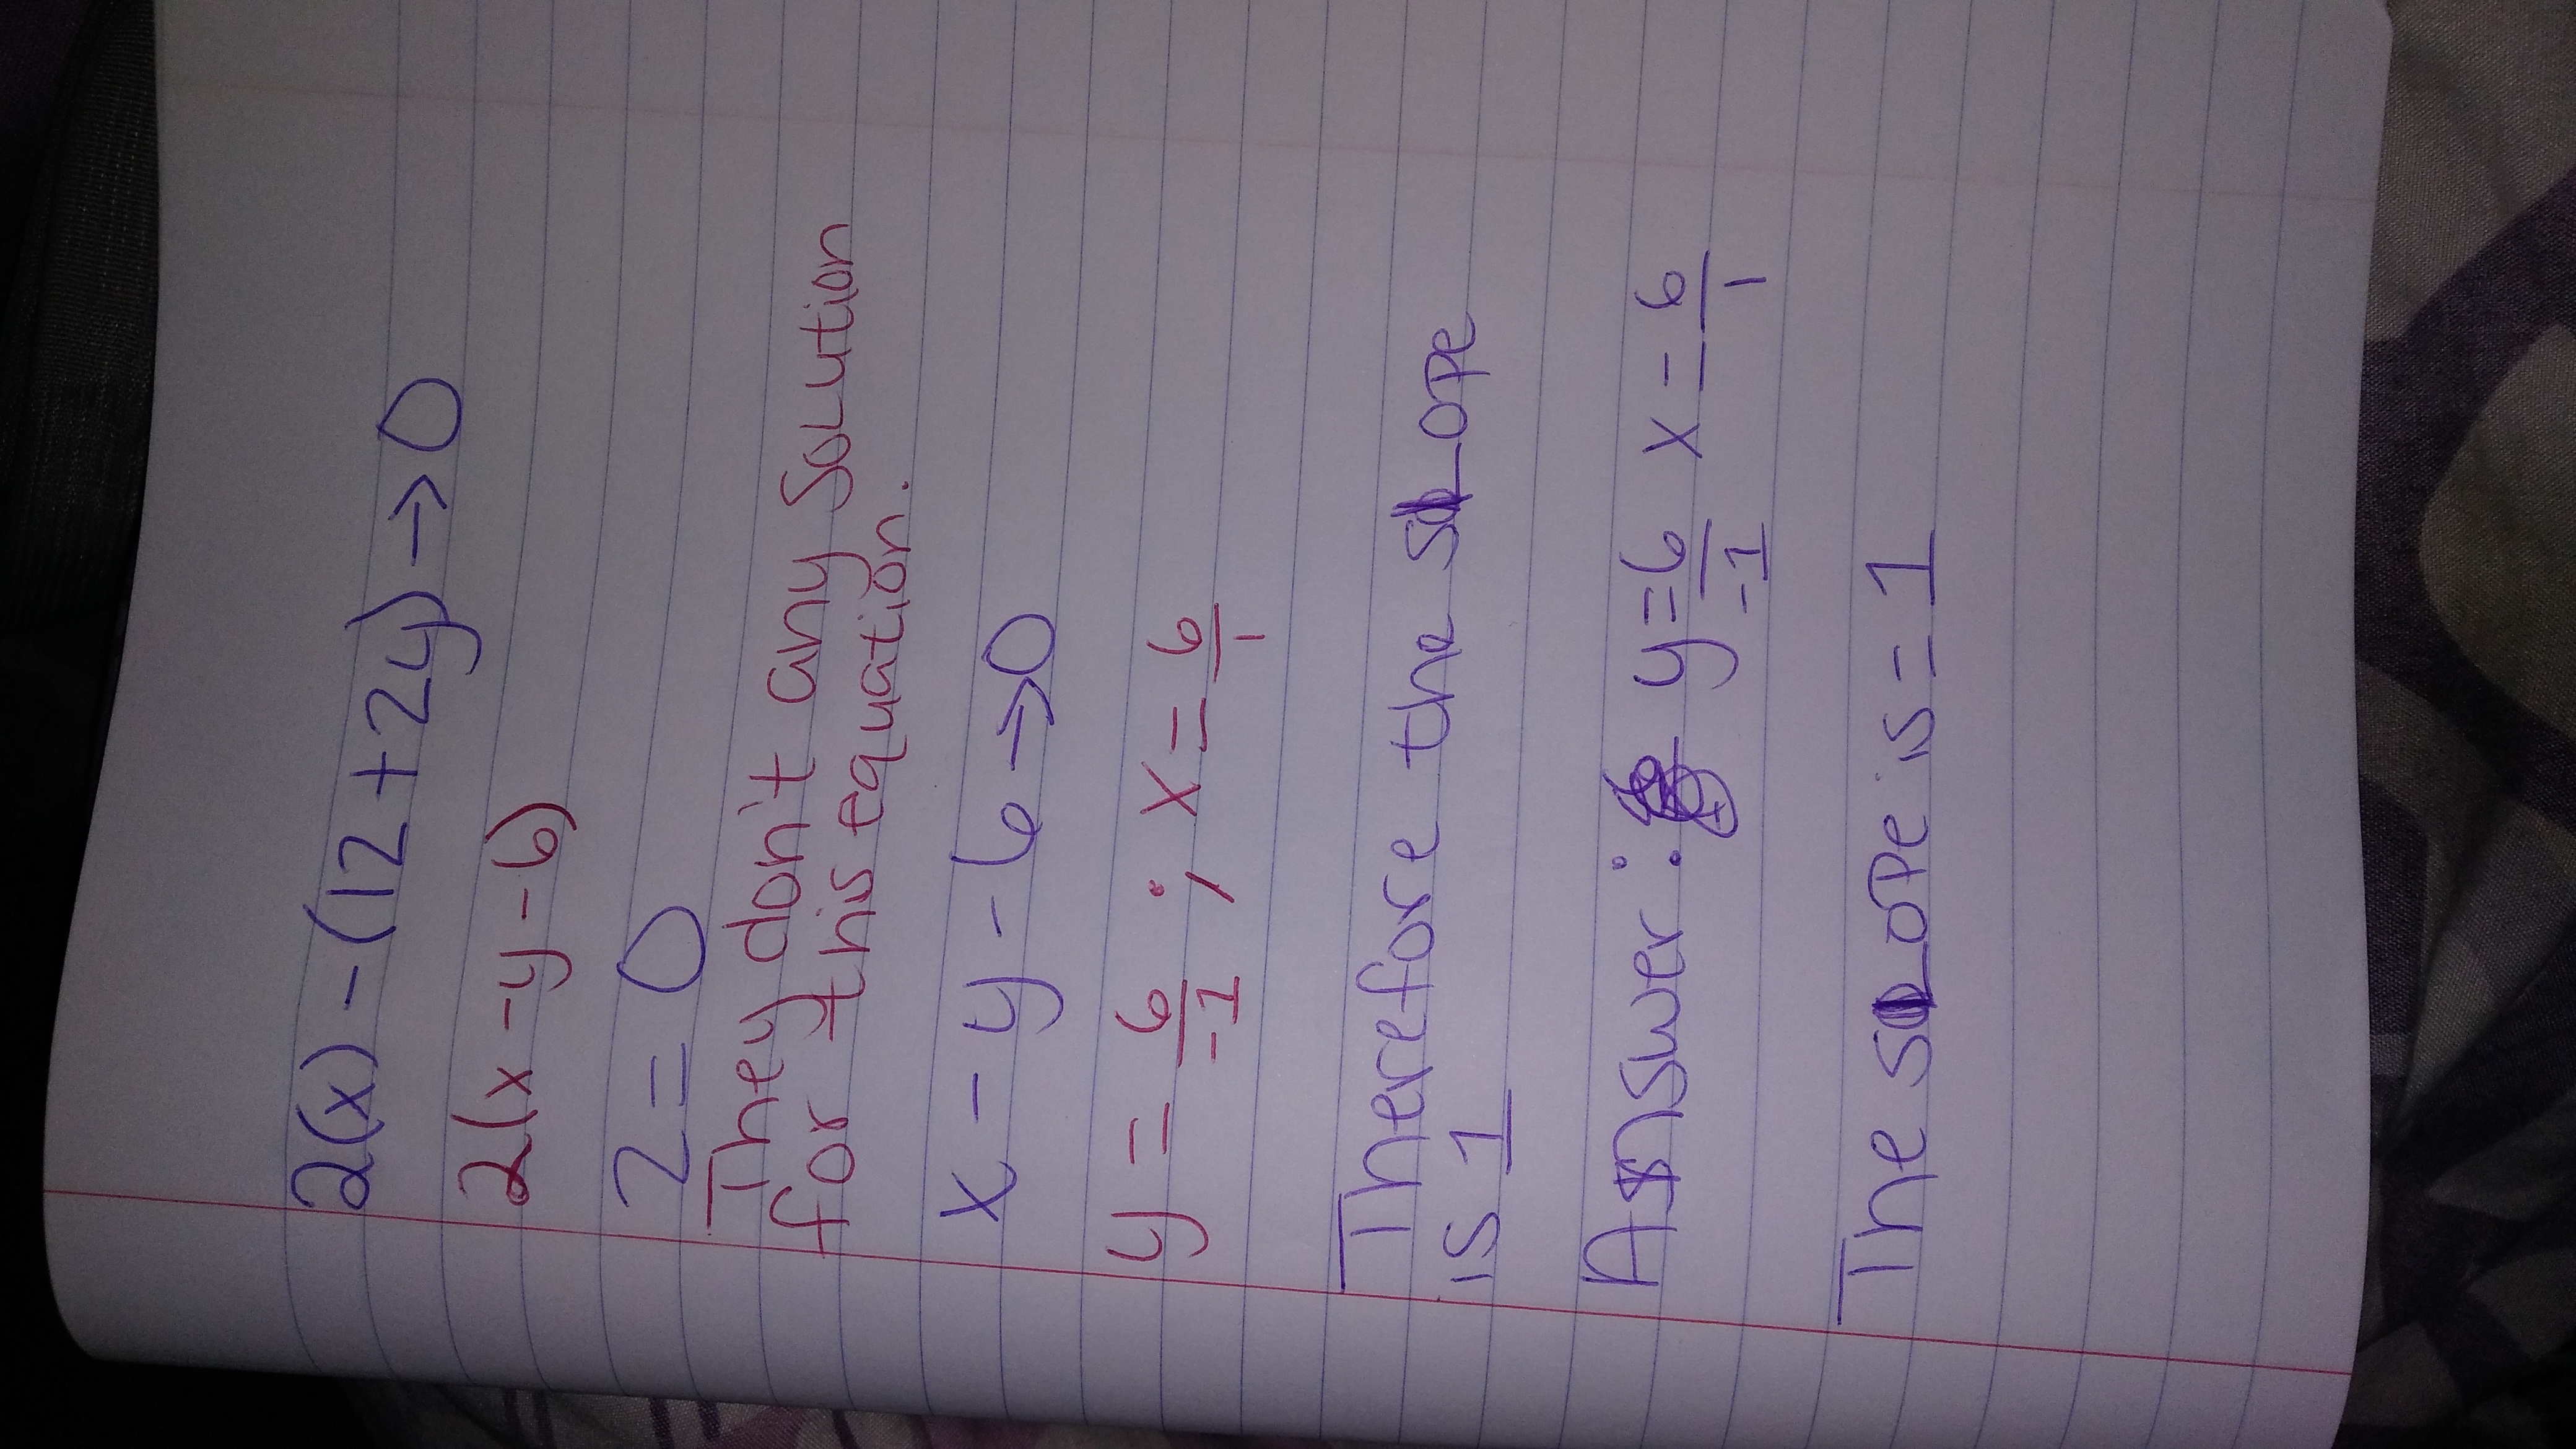 2(x) - (12 + 2y) → 0
2(x - y - 6)
2 = 0
They don't any solution
for this equation.
x - y - 6 → 0
y = 6/-1 ; x = 6/1
Therefore the slope
is 1
Answer: y = 6/-1 x = 6/1
The slope is = 1